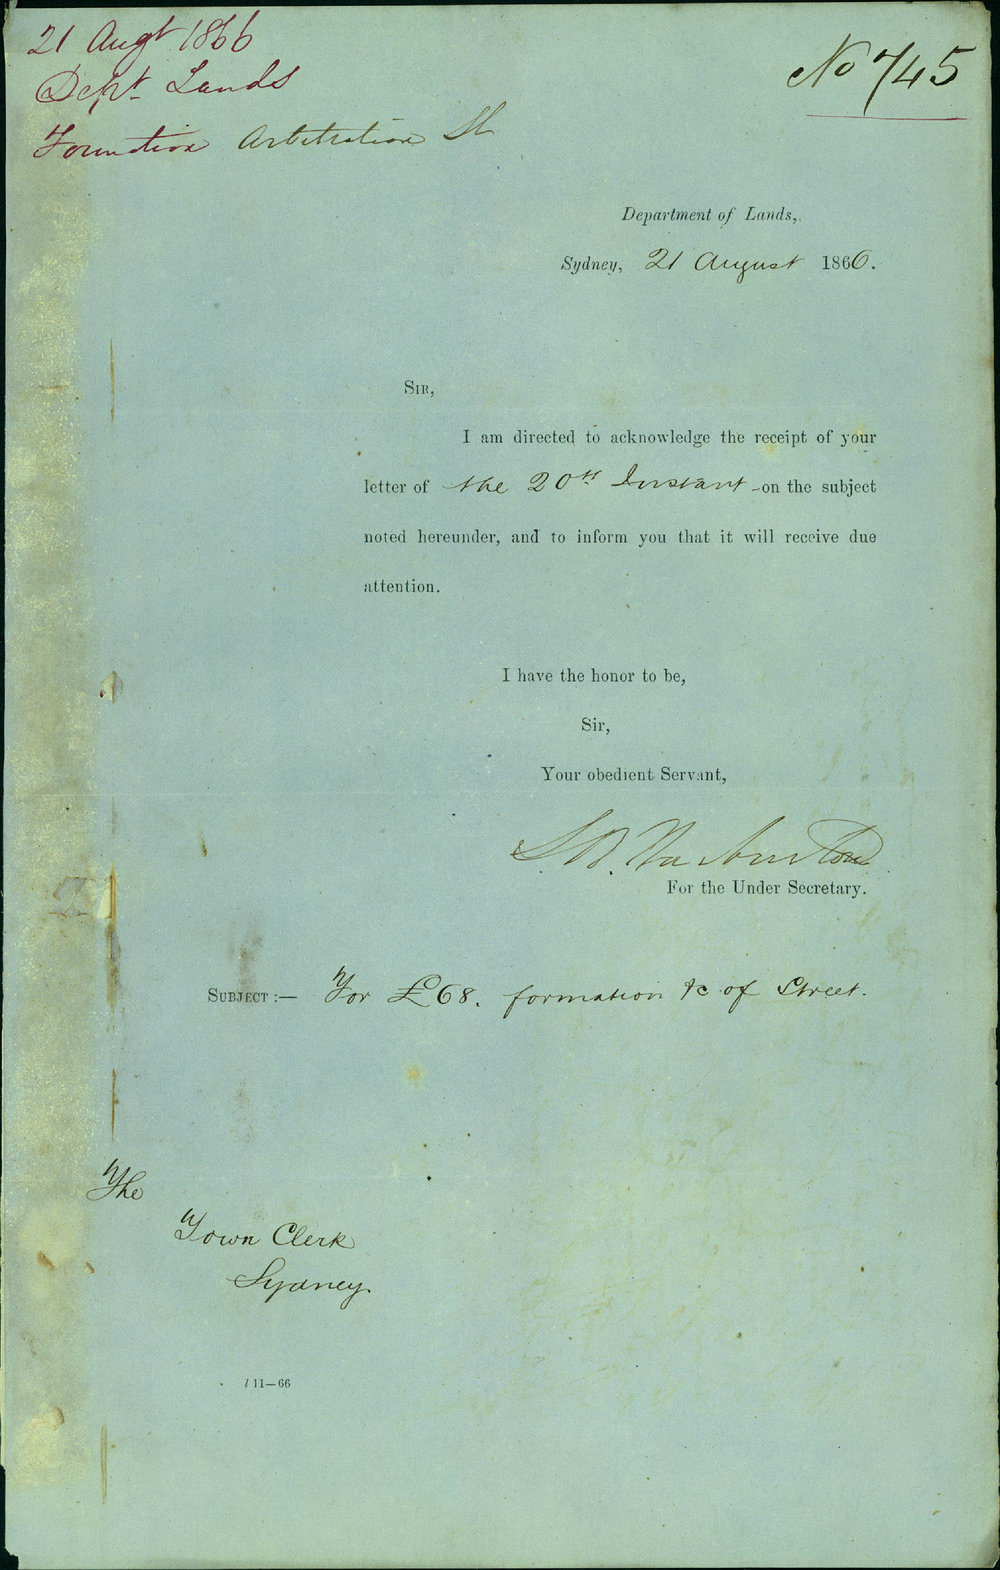 21 Augt 1866
Dept Lands
Formation Arbitration St
No 745
Department of Lands,
Sydney, 21 August 1866.
SIR,
I am directed to acknowledge the receipt of your
letter of the 20th Instant on the subject
noted hereunder, and to inform you that it will receive due
attention.
I have the honor to be,
Sir,
Your obedient Servant,
For the Under Secretary.
SUBJECT :— For £68. formation &c of Street.
The
Town Clerk
Sydney.
l 11—66